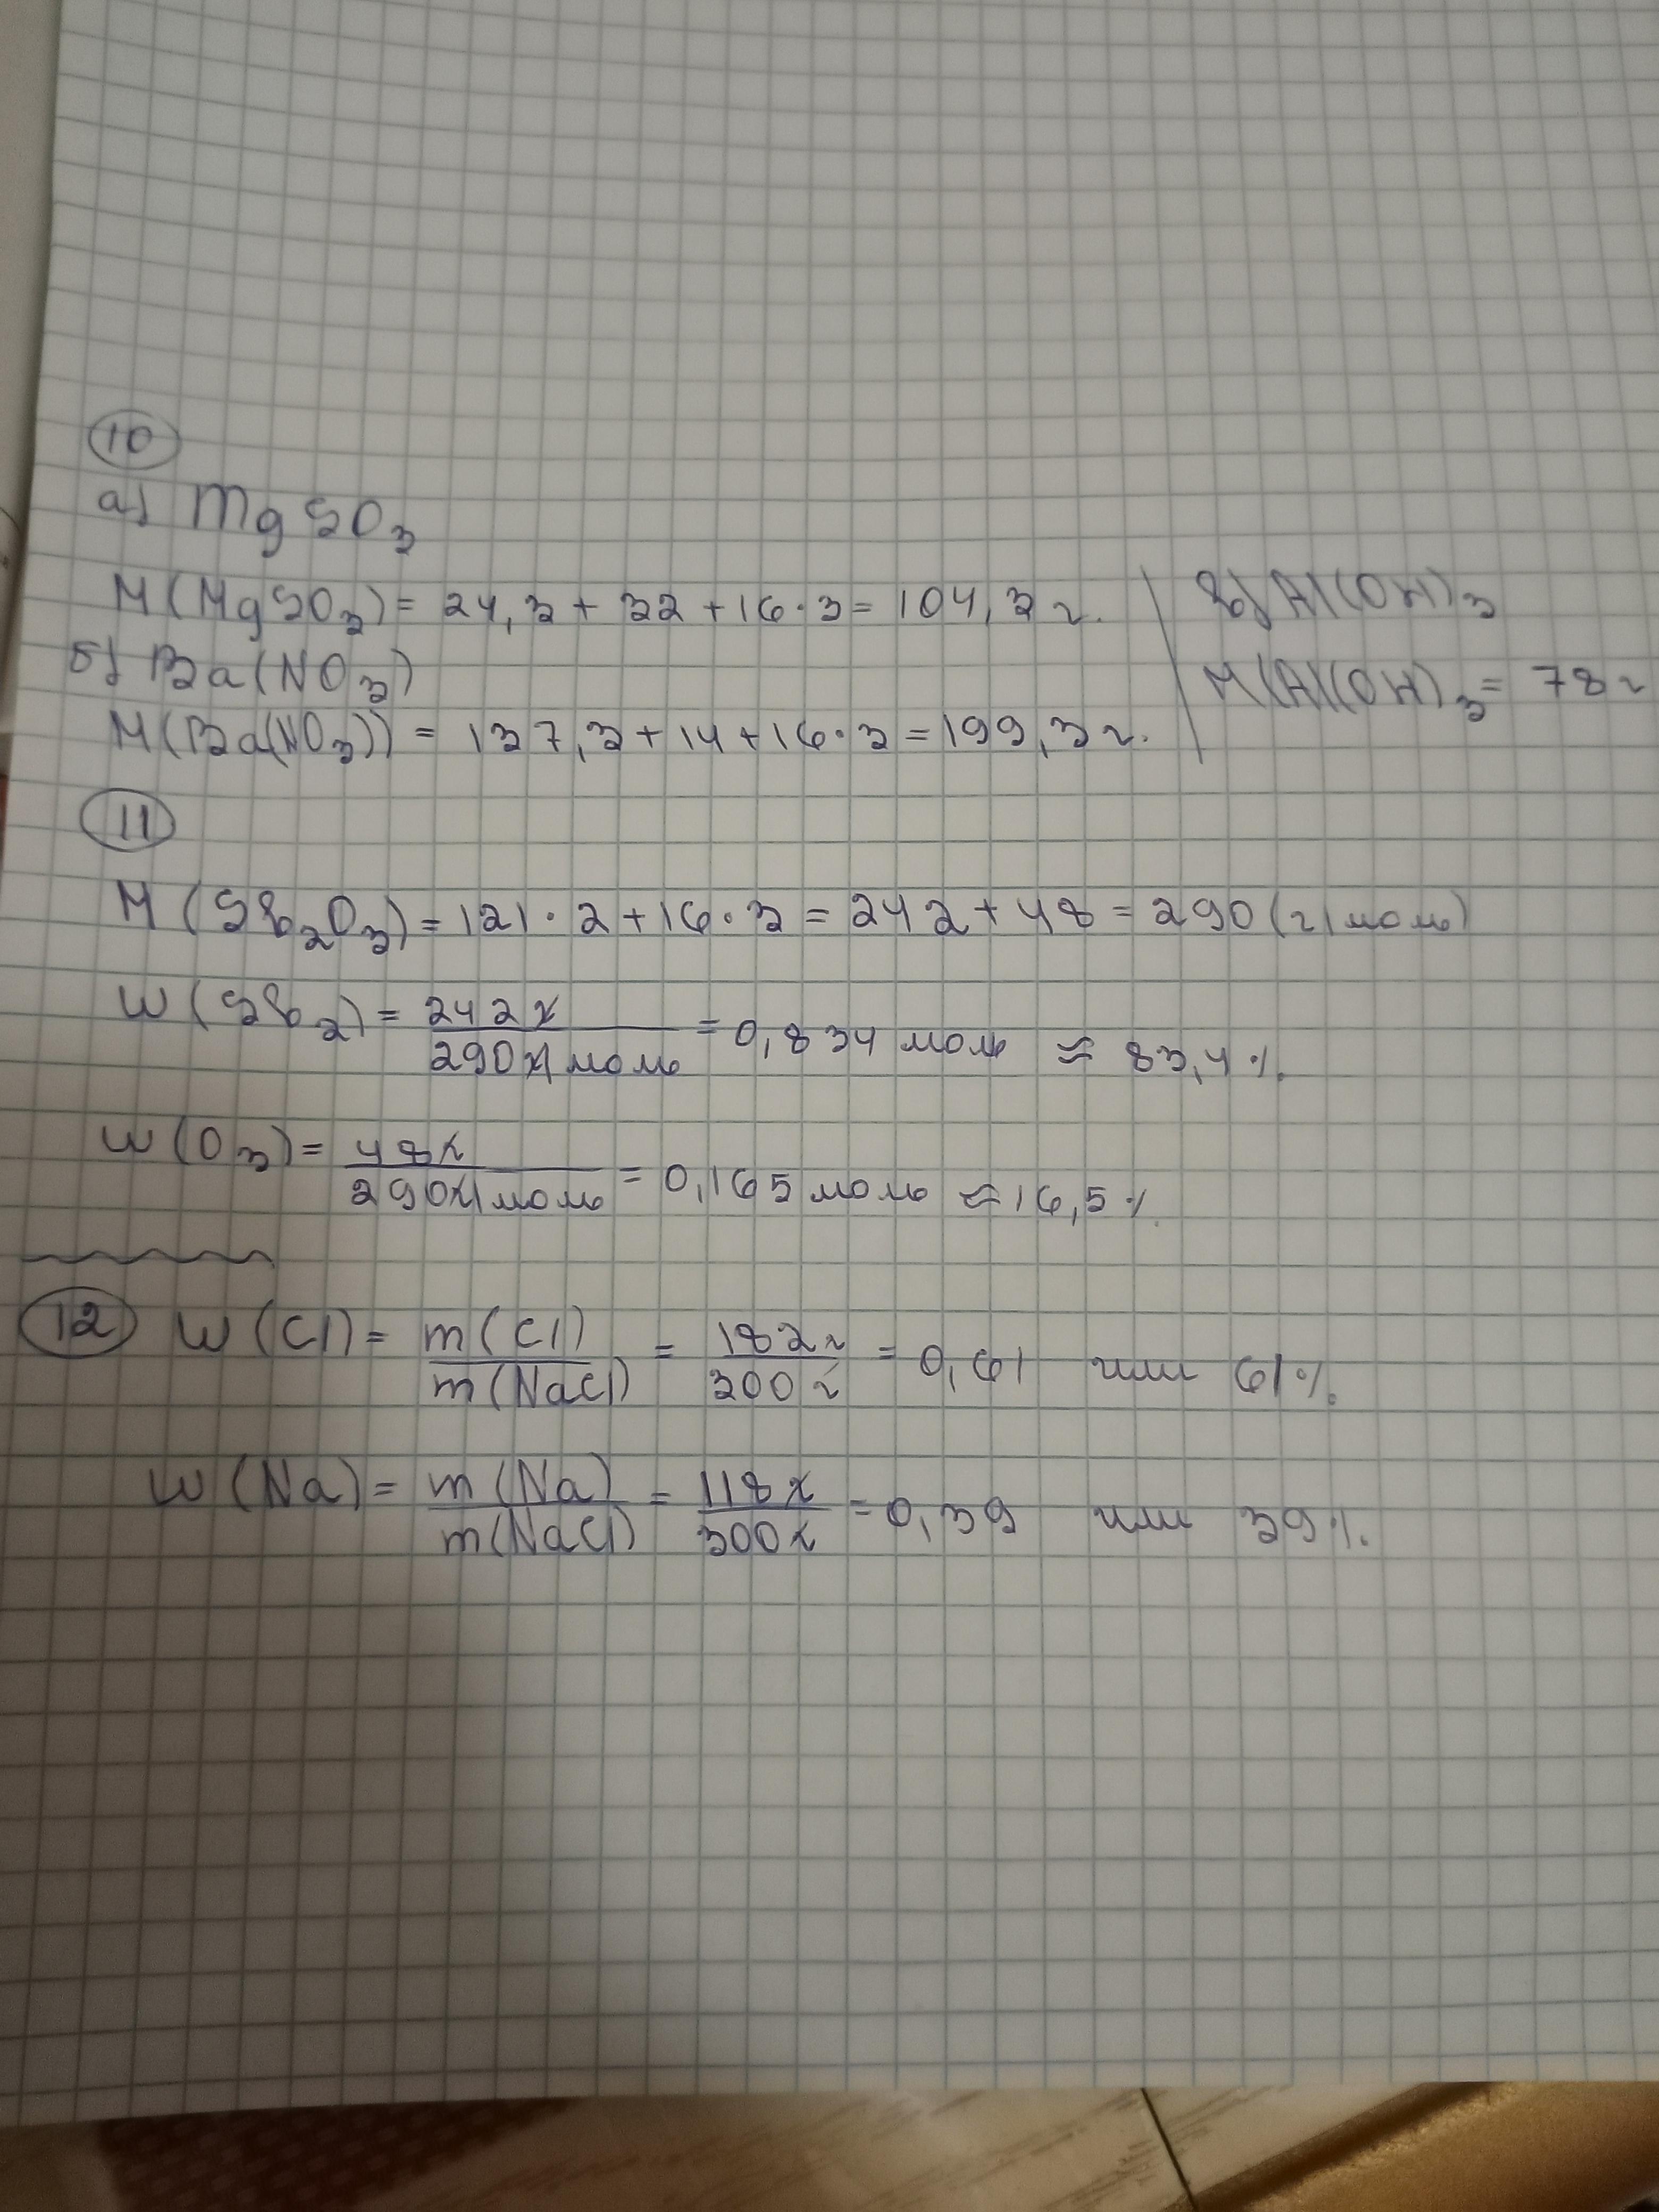 10
а) MgSO₃
M(MgSO₃) = 24,3 + 32 + 16·3 = 104,3 г.
б) Ba(NO₃)
M(Ba(NO₃)) = 137,3 + 14 + 16·3 = 199,3 г.
в) Al(OH)₃
M(Al(OH)₃ = 78 г
11
M(Sb₂O₃) = 121·2 + 16·3 = 242 + 48 = 290 (г/моль)
W(Sb₂) = 242г / 290г/моль = 0,834 моль ≈ 83,4 %.
W(O₃) = 48г / 290г/моль = 0,165 моль ≈ 16,5 %.
12 W(Cl) = m(Cl) / m(NaCl) = 182г / 300г = 0,61 или 61%.
W(Na) = m(Na) / m(NaCl) = 118г / 300г = 0,39 или 39%.